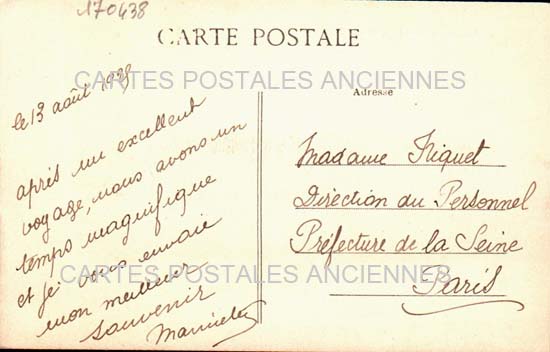 170438
CARTE POSTALE
CARTES POSTALES ANCIENNES
le 13 août
Adresse
après un excellent
voyage, nous avons un
temps magnifique
et je vous envoie
mon meilleur
souvenir
Madame Niquet
Direction du Personnel
Préfecture de la Seine
Paris
CARTES POSTALES ANCIENNES